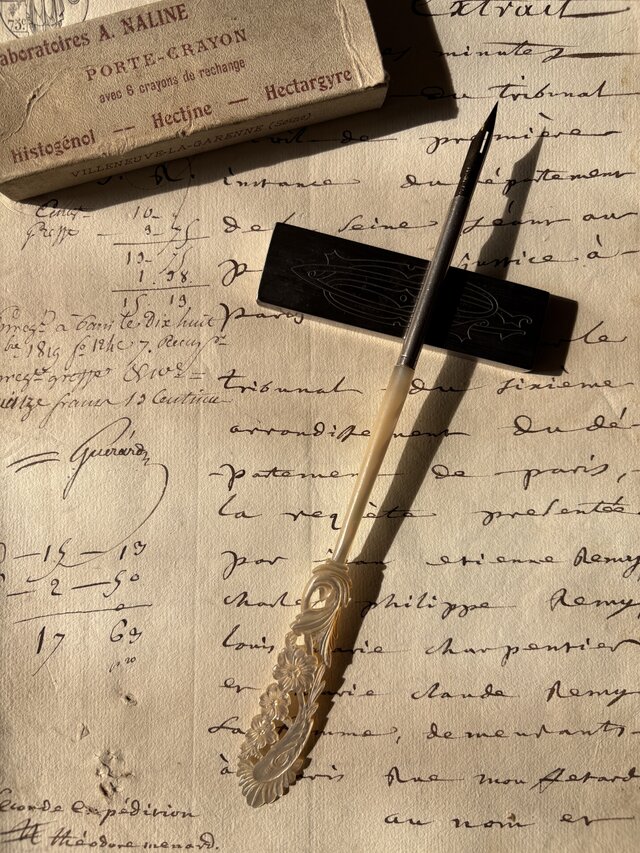 aboratoires A. NALINE
PORTE-CRAYON
avec 6 crayons de rechange
Histogénol — Hectine — Hectargyre
VILLENEUVE-LA-GARENNE (Seine)
Extrait
minutes
du tribunal
de première
instance du département
de la Seine séant au
justice à
paris
tribunal du sixieme
arrondissement du dé-
partement de paris,
la requête présentée
par etienne Remy
charle philippe Remy
louis marie charpentier
et marie claude Remy
sa femme, demeurants
à paris Rue
au nom et
10
9 75
13 75
1 38
15 13
à paris le dix huit
1819
quinze francs 13 Centimes
Guérard
— 15 — 13
— 2 — 50
17 63
Seconde Expédition
théodore menard.